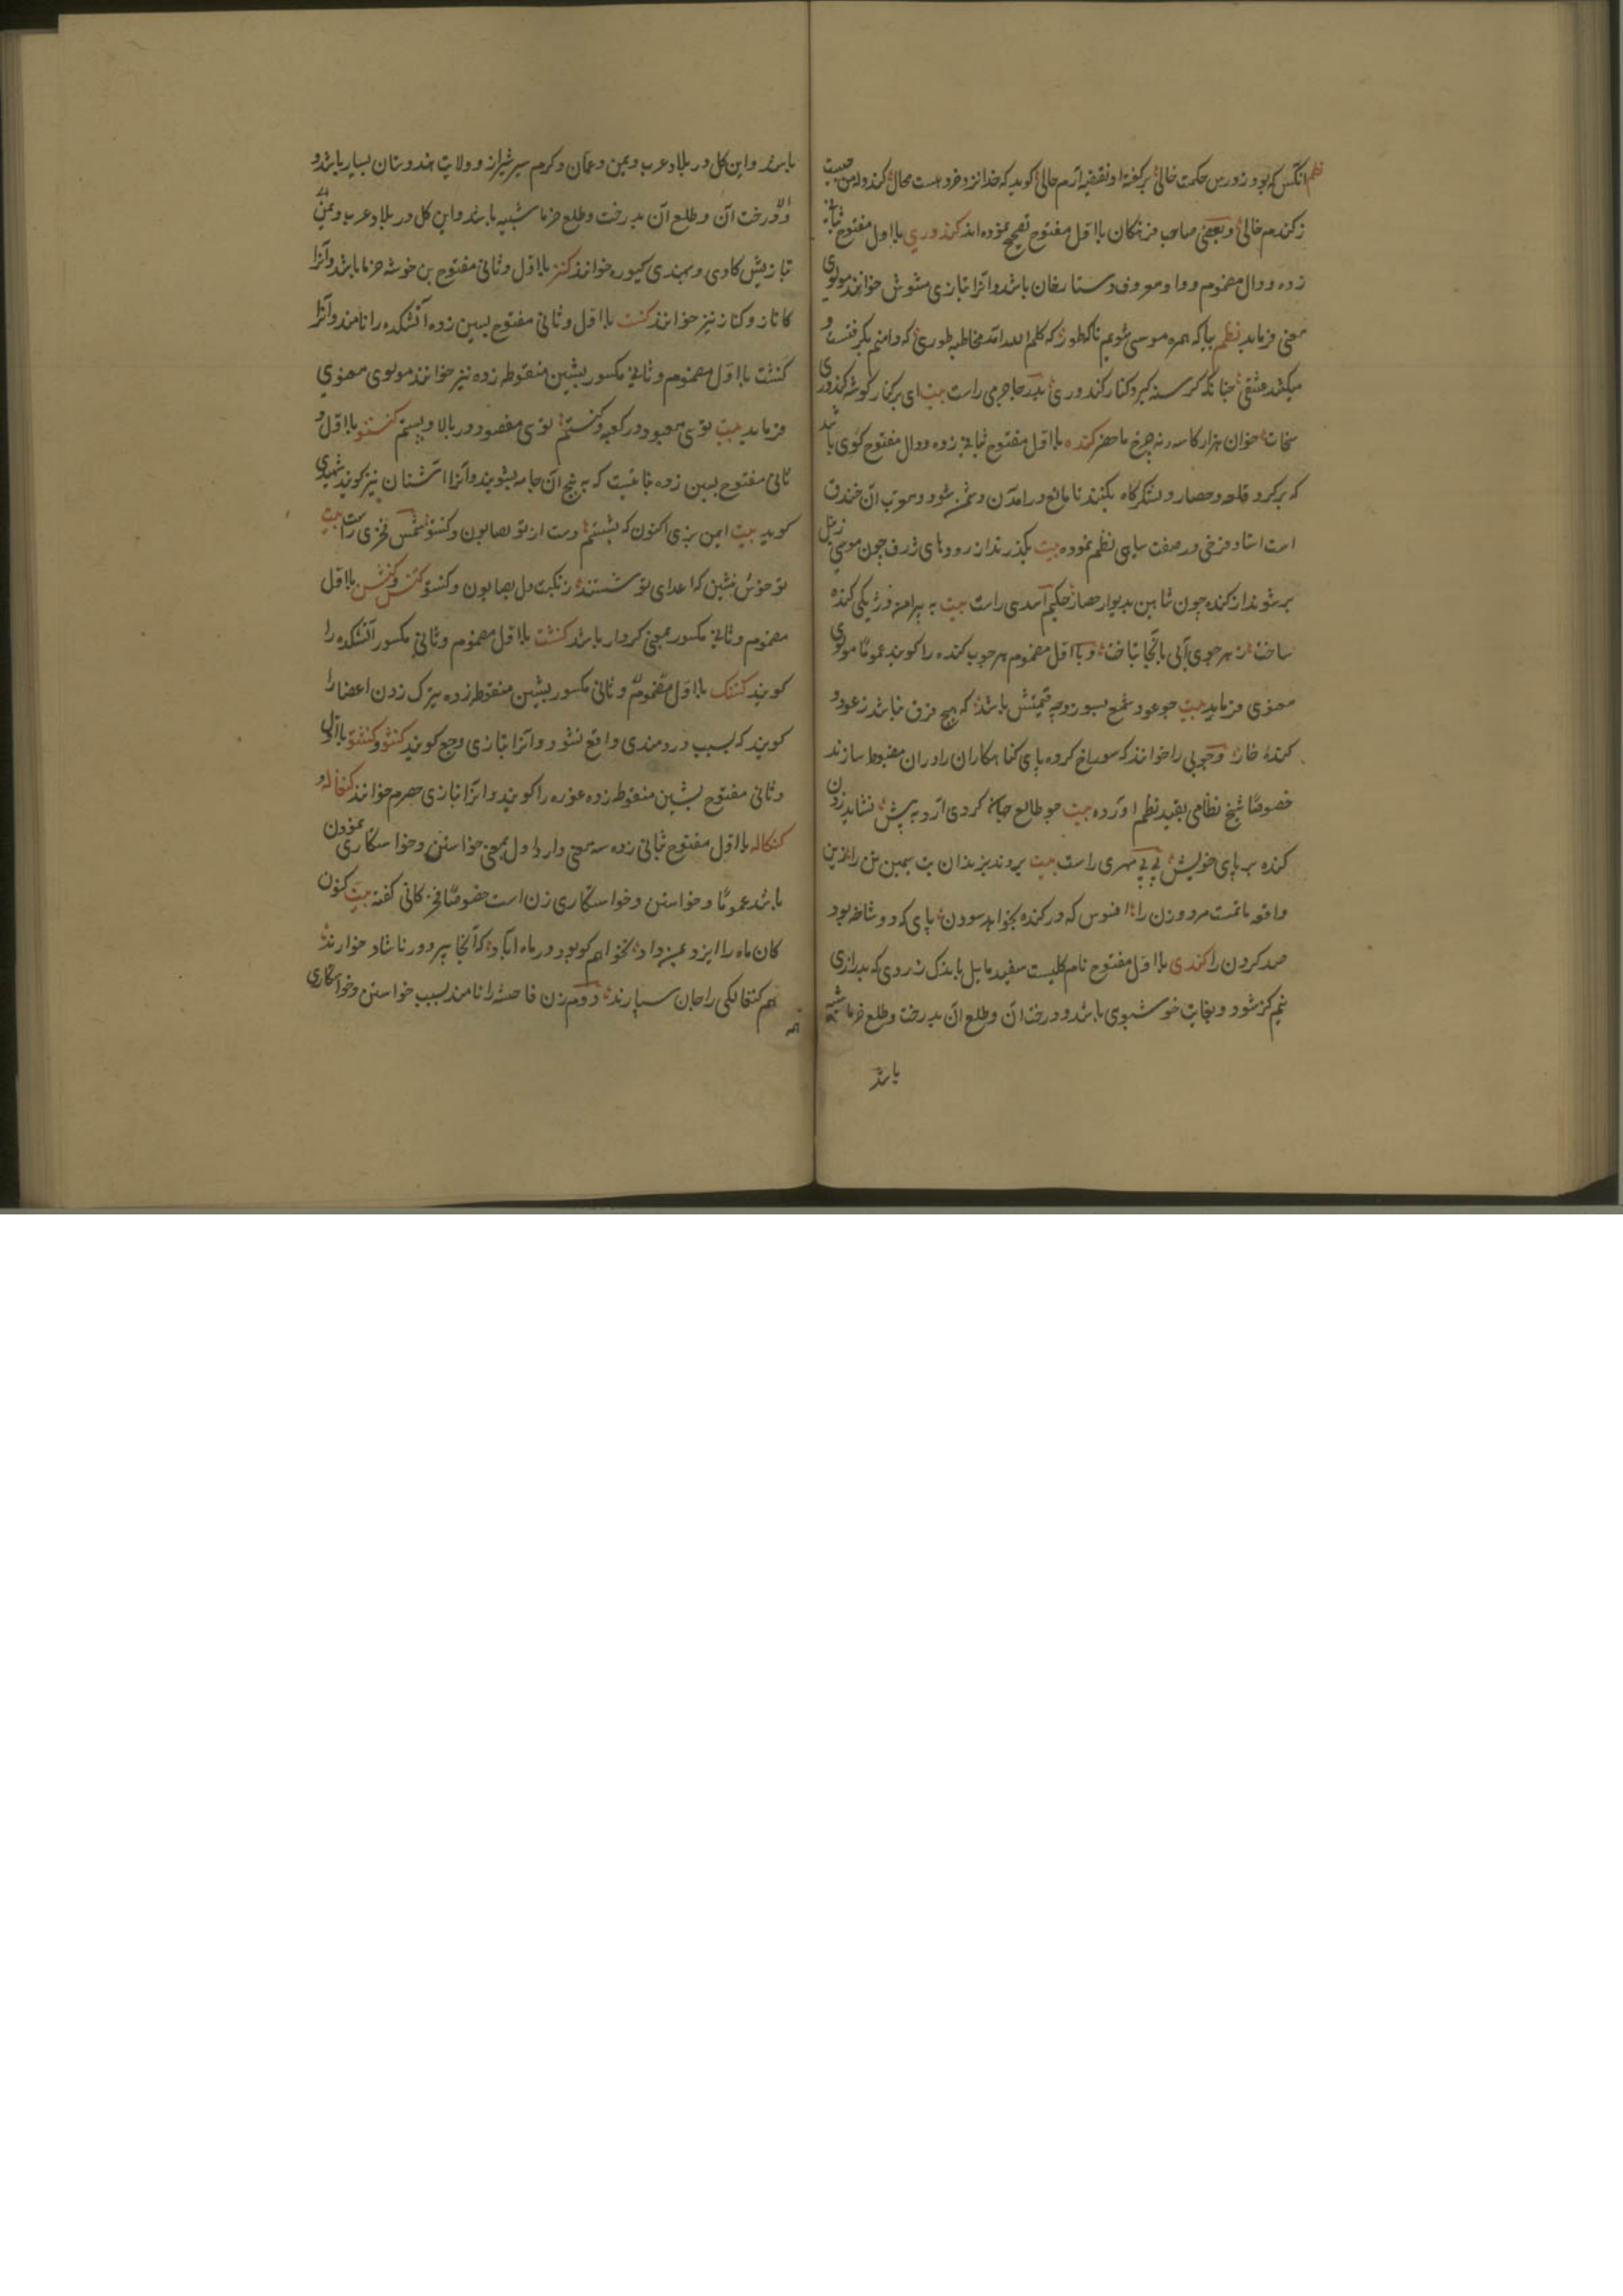 نظم آنکس که بود ز درس حکمت خالی بر گفته او نفقیه آرم حالی گوید که خدا نزد خرد هست محال کند و له من حبیب
ز کندم خالی و بعضی صاحب فرهنگان بااول مفتوح تصحیح نموده اند کندوری بااول مفتوح بثانی
زده و دال مضموم و واو معروف دستارخان باشد و آنرا بتازی مشوش خوانند مولوی
معنی فرماید نظم بیا که همره موسی شویم تا که طور که کلم الله آمد مخاطبه طوری که دامنم بگرفتست و
میکشد عشقی چنانکه گرسنه گیرد کنار کندوری بدر جاجرمی راست بیت ای بر کنار گوشه کندوری
سخات خوان هزار کاسه نه چرخ ماحضر کنده بااول مفتوح بثانی زده و دال مفتوح گوی باشد
که بر گرد قلعه و حصار و لشکرگاه بکنند تا مانع درآمدن دشمن شود و معرب آن خندق
است استاد فرخی در صفت سپاهی نظم نموده بیت بگذرند از رودهای ژرف چون موسی ز نیل
بر شوند از کنده چون شاهین بدیوار حصار حکیم اسدی راست بیت به پیرامن دژ یکی کنده
ساخت ز هر جوی آبی بآنجا بتاخت و بااول مضموم هر چوب کنده را گویند عموما مولوی
معنوی فرماید بیت چو عود و شمع بسوزد چه قیمتش باشد که هیچ فرق نباشد ز عود و
کنده خار و چوبی را خوانند که سوراخ کرده پای گناهکاران را در آن مضبوط سازند
خصوصا شیخ نظامی بقید نظم آورده بیت چو طالع جهان گردی آرد به پیش نشاید زدن
کنده بر پای خویش بی بی مهری راست بیت بردند بزندان بت سیمین تن را زین
واقعه ماتمست مرد و زن را افسوس که در کنده بخواهد سودن پای که دو شاخه بود
صد گردن را کندی بااول مفتوح نام گلیست سفید مایل باندک زردی که بدرازی
نیم گز شود و بغایت خوشبوی باشد و درخت آن و طلع آن بدرخت و طلع خرما شبیه
باشد
باشد و این گل در بلاد عرب و یمن و عمان و گرم سیر شیراز و ولایت هندوستان بسیار باشد و
درخت آن و طلع آن بدرخت و طلع خرما شبیه باشد و این گل در بلاد عرب و یمن
بتازیش کادی و بهندی کیوره خوانند کنز بااول و ثانی مفتوح بن خوشه خرما باشد و آنرا
کاناز و کناز نیز خوانند کنست بااول و ثانی مفتوح بسین زده آتشکده را نامند و آنرا
کنشت بااول مضموم و ثانی مکسور بشین منقوطه زده نیز خوانند مولوی معنوی
فرماید بیت توی معبود در کعبه و کنشتم توی مقصود در بالا و پستم کنستو بااول و
ثانی مفتوح بسین زده نباتیست که به بیخ آن جامه بشویند و آنرا اشنان نیز گویند شهیدی
گوید بیت ایمن بزی اکنون که بشستم دست از تو بصابون و کنستو شمس فخری راست بیت
تو خوش بنشین که اعدای تو شستند ز نکبت دل بصابون و کنستو کنش و کنشن بااول
مضموم و ثانی مکسور بمعنی کردار باشد کنشت بااول مضموم و ثانی مکسور آتشکده را
گویند کنشک بااول مضموم و ثانی مکسور بشین منقوطه زده تیرک زدن اعضا را
گویند که بسبب دردمندی واقع شود و آنرا بتازی وجع گویند کنشو و کنشتو بااول
و ثانی مفتوح بشین منقوطه زده غوره را گویند و آنرا بتازی حصرم خوانند کنغاله و
کنکاله بااول مفتوح بثانی زده سه معنی دارد اول بمعنی خواستن و خواستکاری نمودن
باشد عموما و خواستن و خواستکاری زن است خصوصا فخر کانی گفته بیت کنون
کان ماه را ایزد بمن داد نخواهم کو بود در ماه آباد که آنجا پیر و برنا شاد خوارند
هم کنغالگی را جان سپارند دوم زن فاحشه را نامند بسبب خواستن و خواستکاری